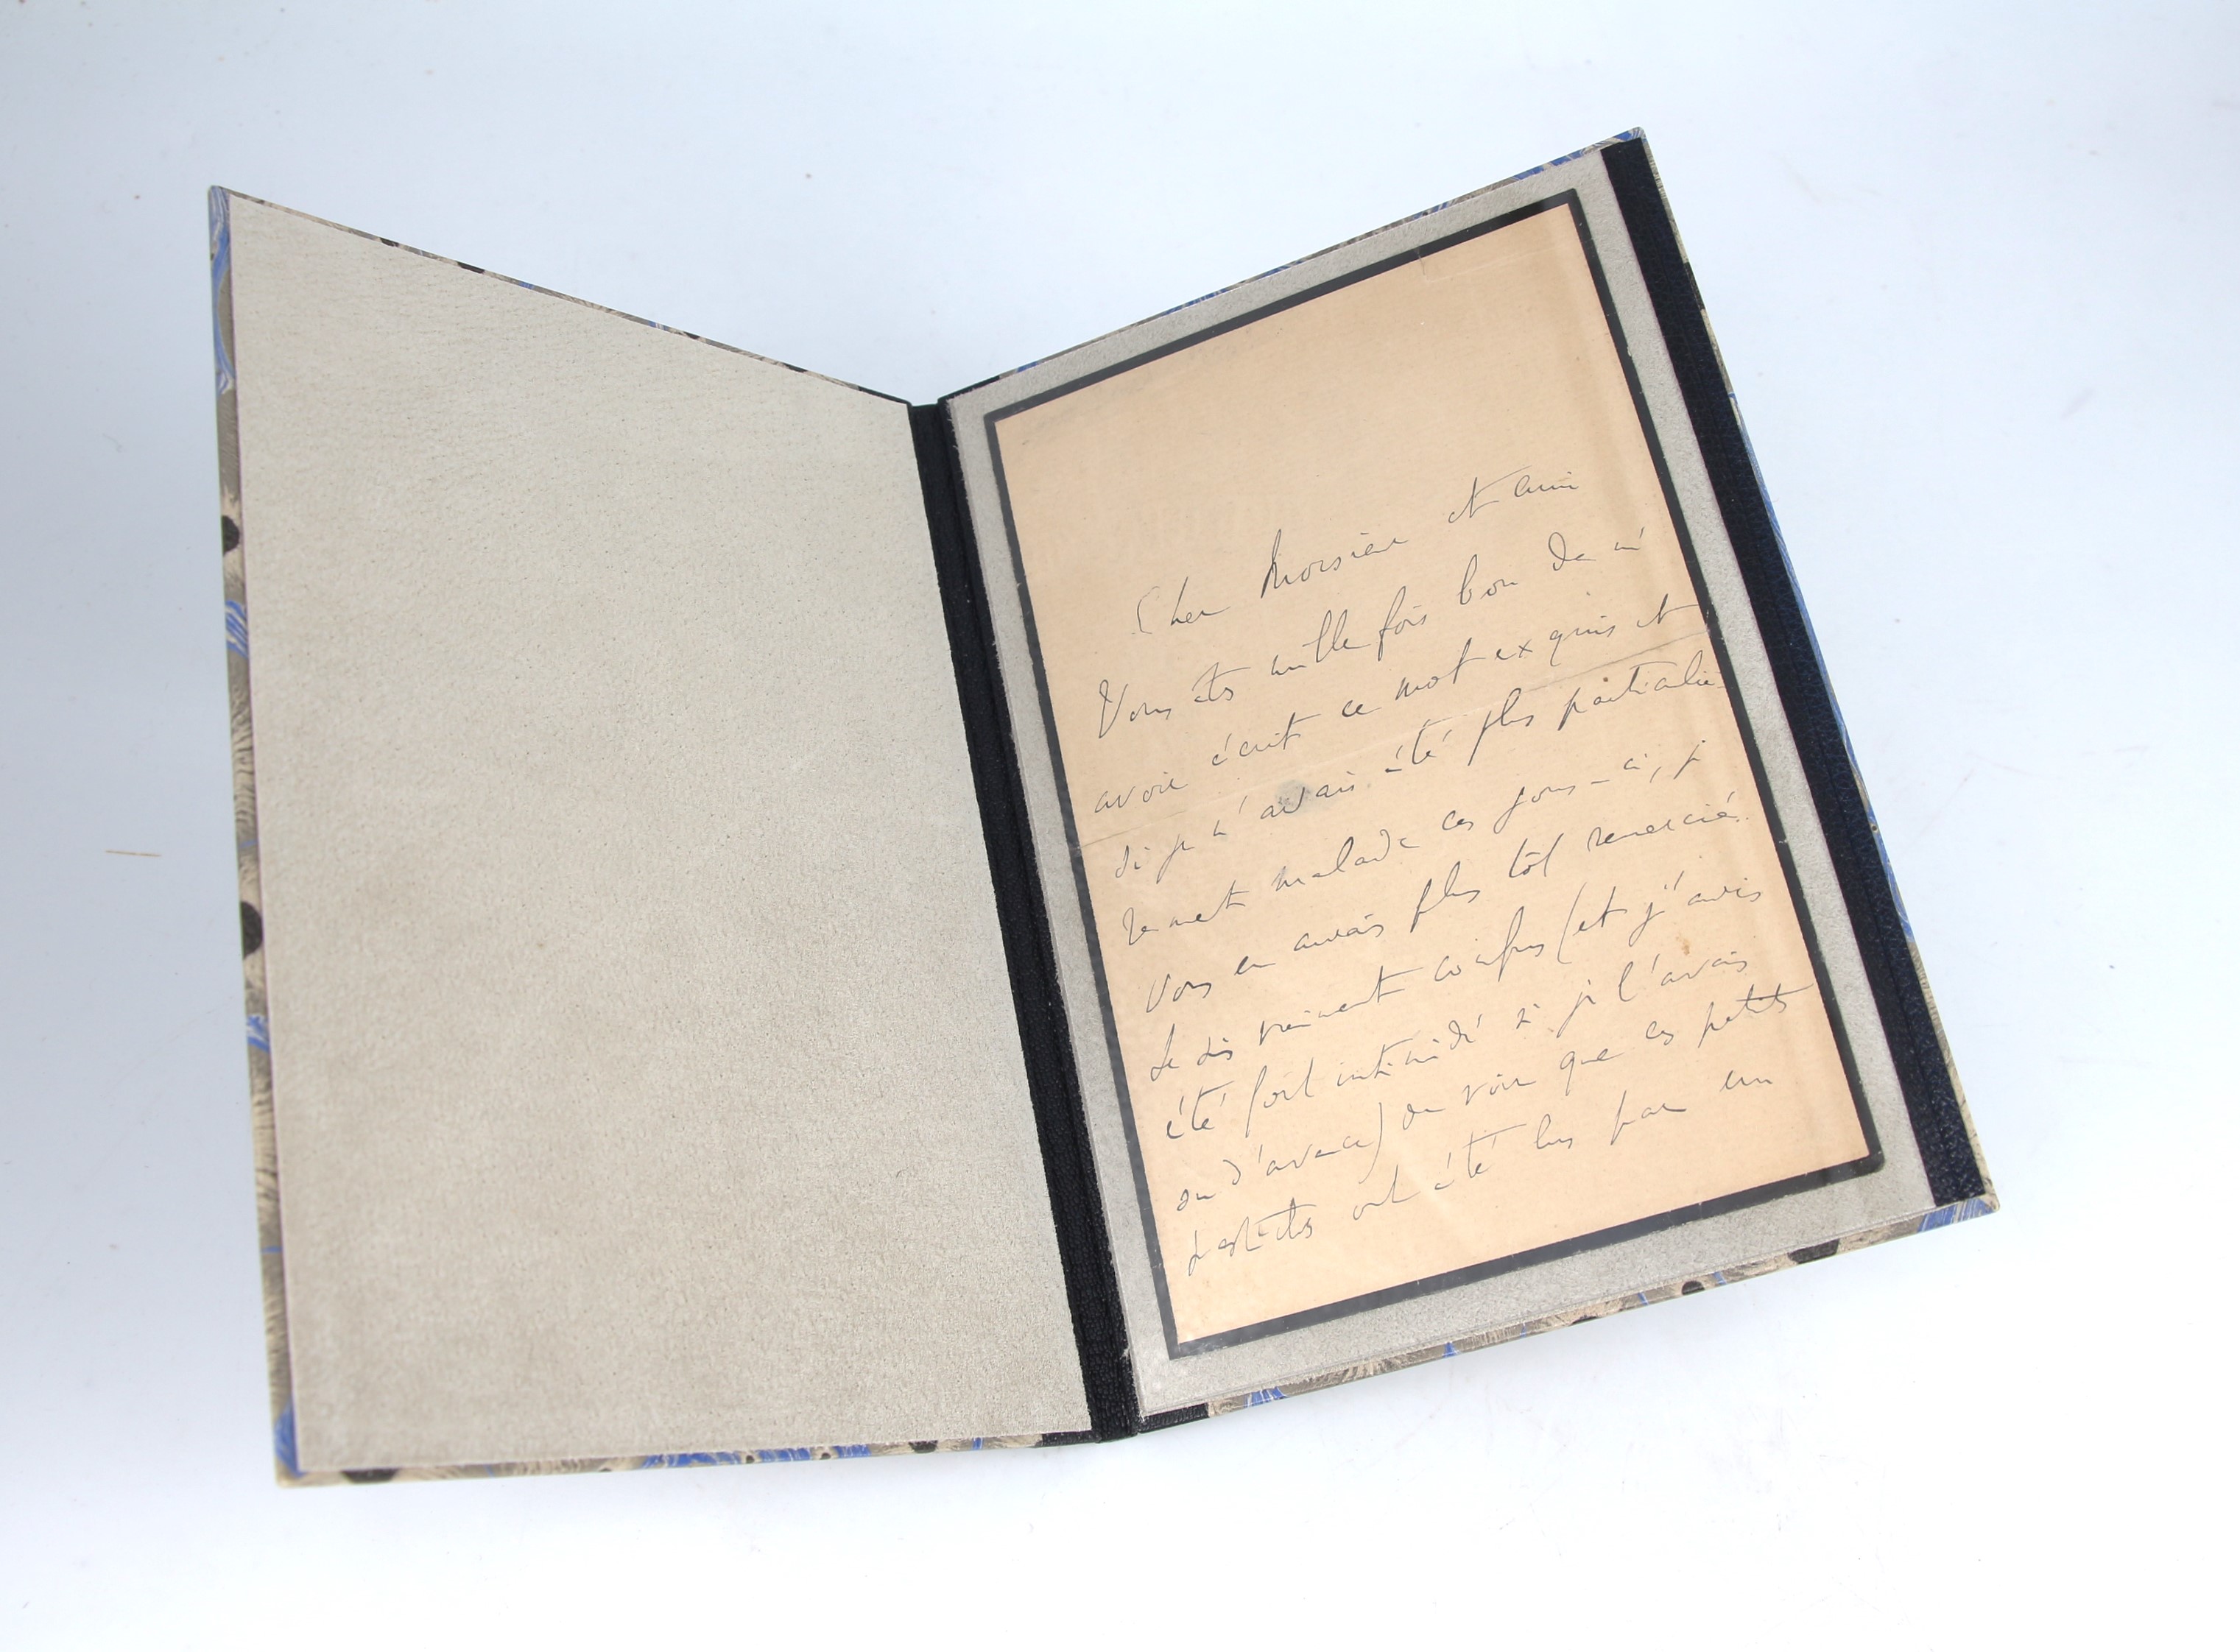 Cher Monsieur et ami
Vous êtes mille fois bon de m'
avoir écrit ce mot exquis et
si je n'avais été plus particuliè-
rement malade ces jours-ci, je
vous en aurais plus tôt remercié.
Je suis vraiment confus (et j'aurais
été fort intimidé si je l'avais
su d'avance) de voir que ces petits
pastiches ont été lus par un